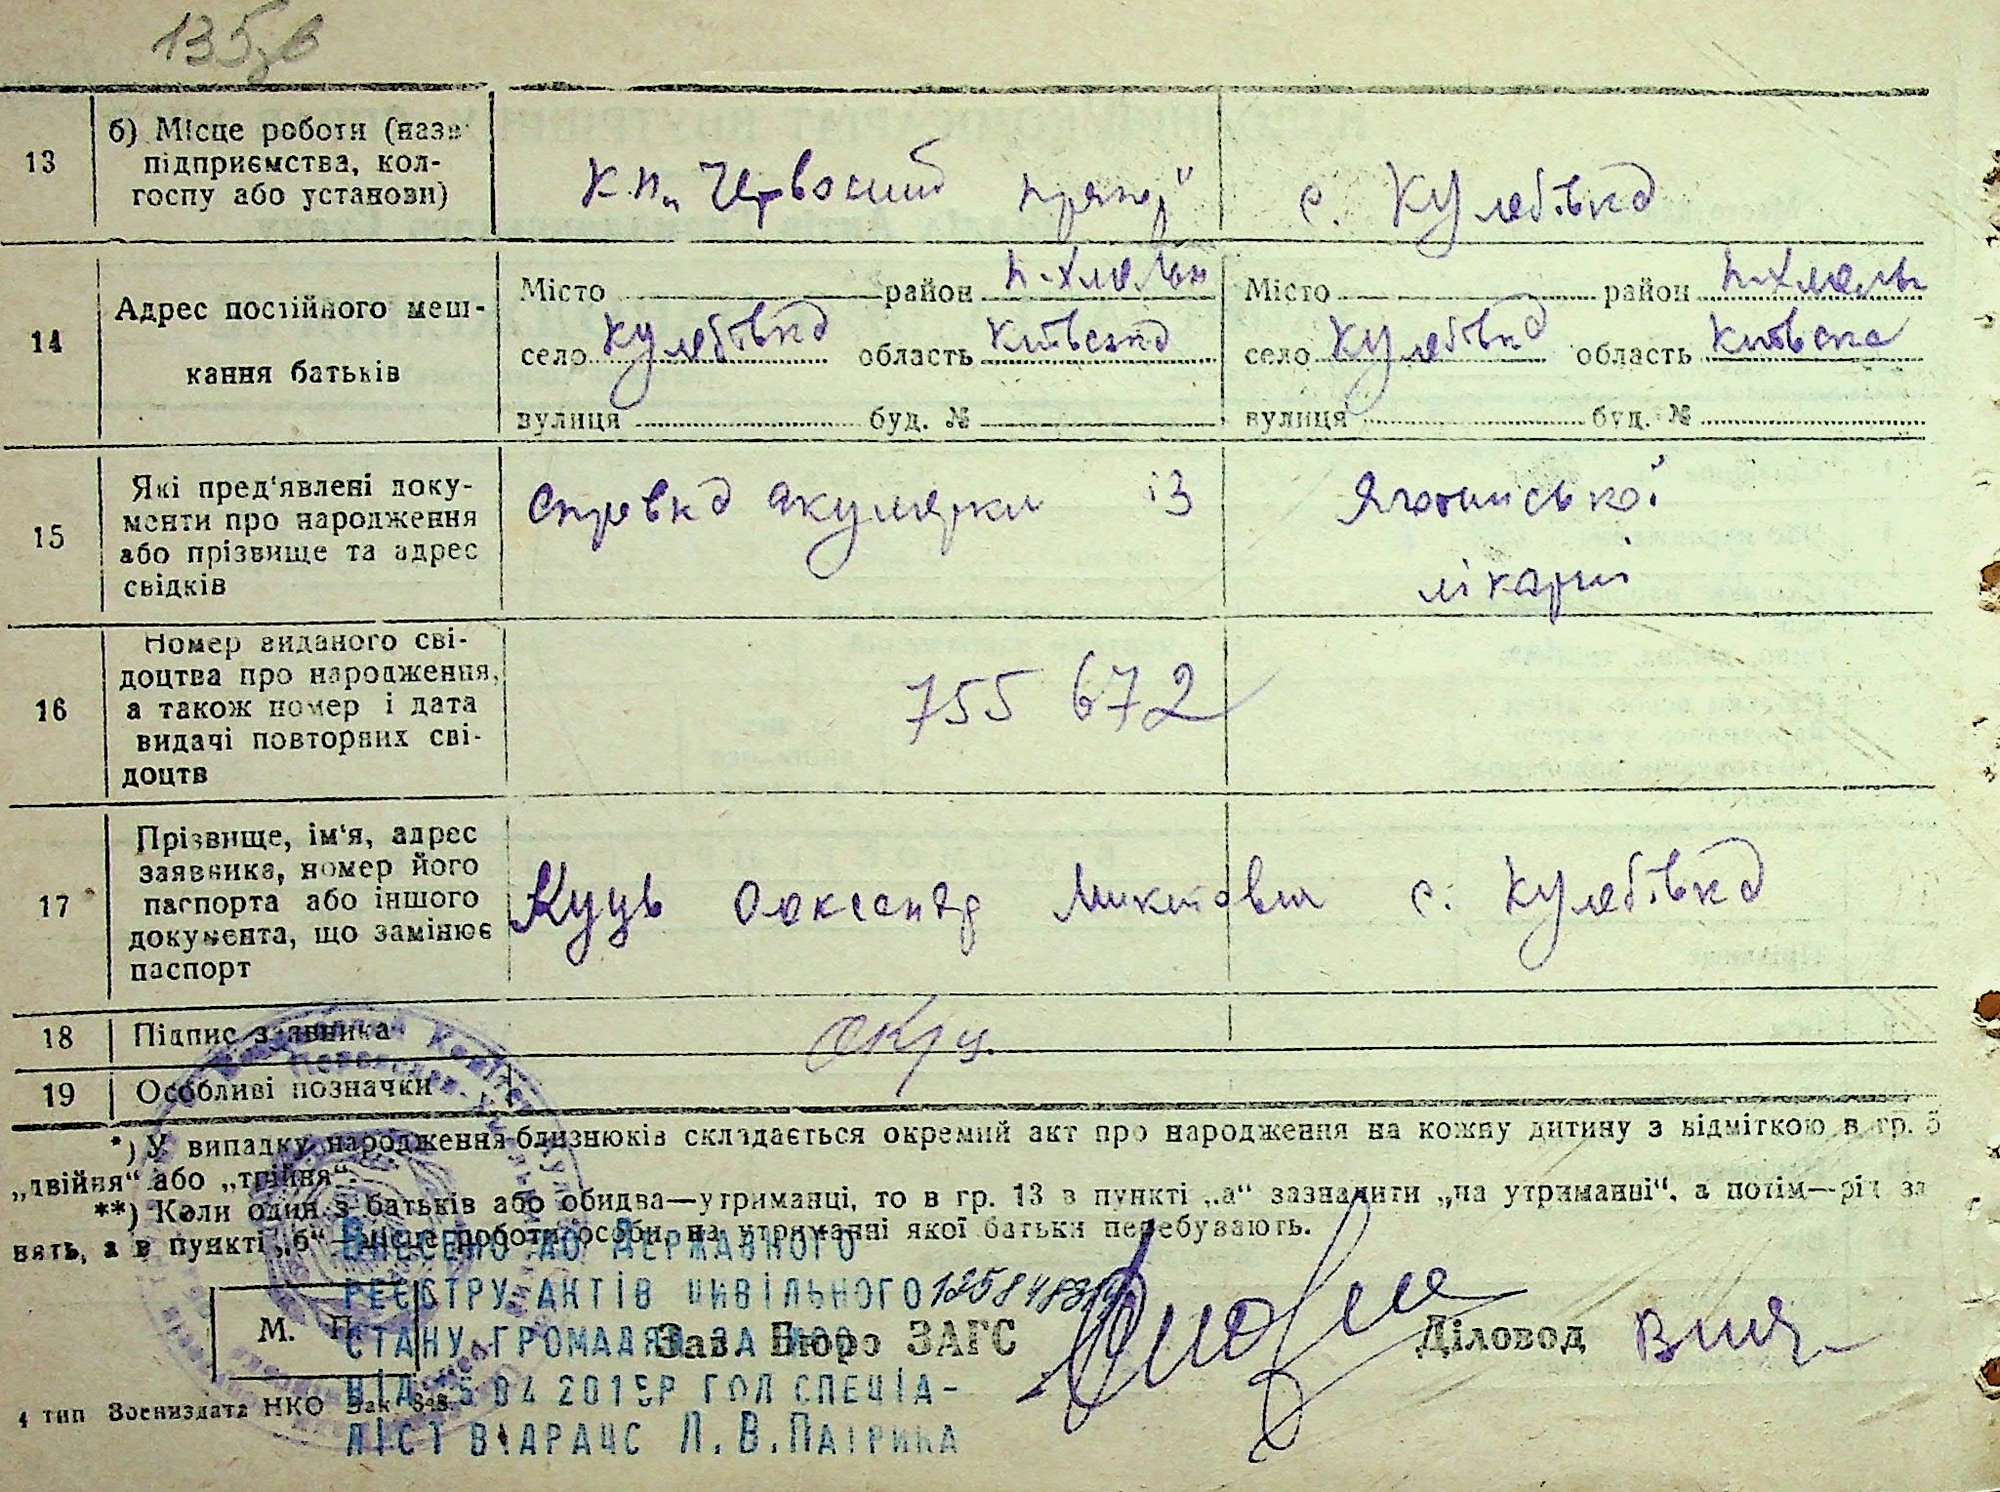 135зв
13
б) Місце роботи (назв
підприємства, кол-
госпу або установи)
к.п. „Червоний прапор"
с. Кулябівка
14
Адрес постійного меш-
кання батьків
Місто район п-Хмельн
село Кулябівка область Київська
вулиця буд. №
Місто район п-Хмельн
село Кулябівка область Київська
вулиця буд. №
15
Які пред'явлені доку-
менти про народження
або прізвище та адрес
свідків
Справка акушерки із Яготинської
лікарні
16
Номер виданого сві-
доцтва про народження,
а також номер і дата
видачі повторних сві-
доцтв
755 672
17
Прізвище, ім'я, адрес
заявника, номер його
паспорта або іншого
документа, що замінює
паспорт
Куць Олександр Микитович с. Кулябівка
18
Підпис заявника
19
Особливі позначки
*) У випадку народження близнюків складається окремий акт про народження на кожну дитину з відміткою в гр. 5
„двійня“ або „трійня“.
**) Коли один з батьків або обидва—утриманці, то в гр. 13 в пункті „а“ зазначити „на утриманні“, а потім—рід за
нять, а в пункті „б“—місце роботи особи, на утриманні якої батьки перебувають.
ВНЕСЕНО ДО ДЕРЖАВНОГО
РЕЄСТРУ АКТІВ ЦИВІЛЬНОГО
СТАНУ ГРОМАДЯН ЗА
04 2015Р ГОЛ СПЕЦІА-
ЛІСТ ВДРАЦС Л.В.ПАТРИКА
М. П.
Зав. Бюро ЗАГС
Діловод
4 тип Воениздата НКО Зак.